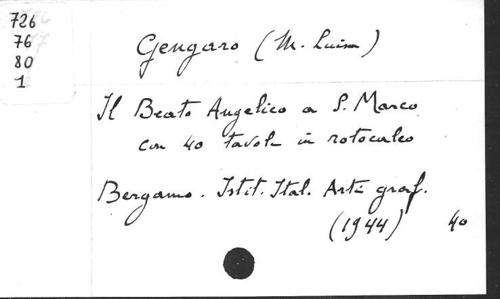 726
76
80
1
Gengaro (M. Luisa)
Il Beato Angelico a S. Marco
con 40 tavole in rotocalco
Bergamo. Istit. Ital. Arti graf.
(1944) 40